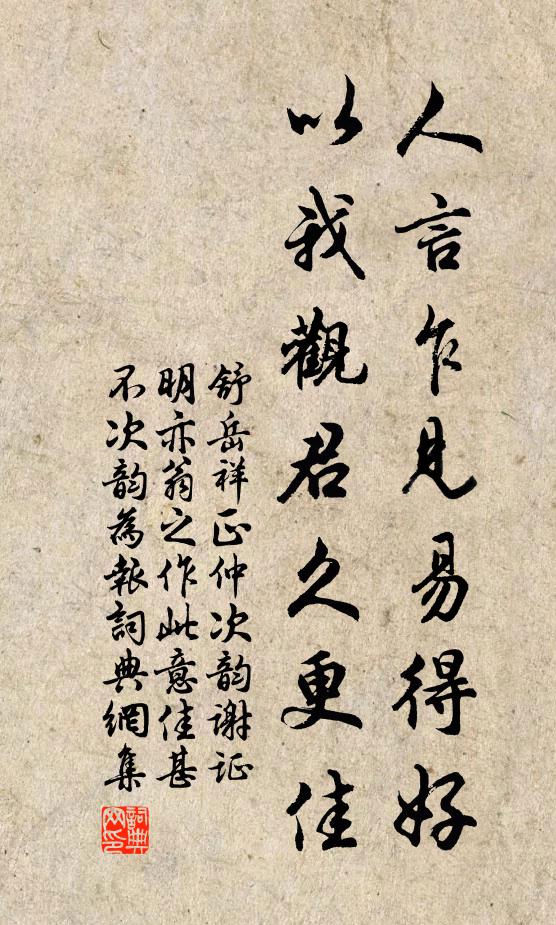 人言乍見易得好
以我觀君久更佳
舒岳祥正仲次韵謝証
明亦翁之作此意佳甚
不次韵為報詞典網集
詞典
网印